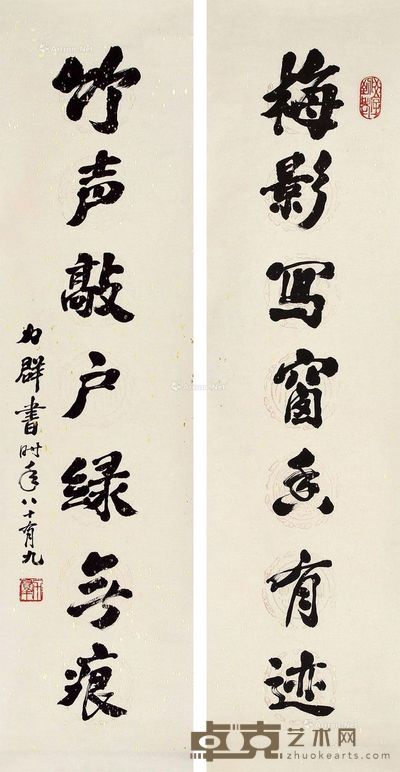 梅影写窗香有迹
竹声敲户绿无痕
力群书时年八十有九
卓克艺术网
zhuokearts.com